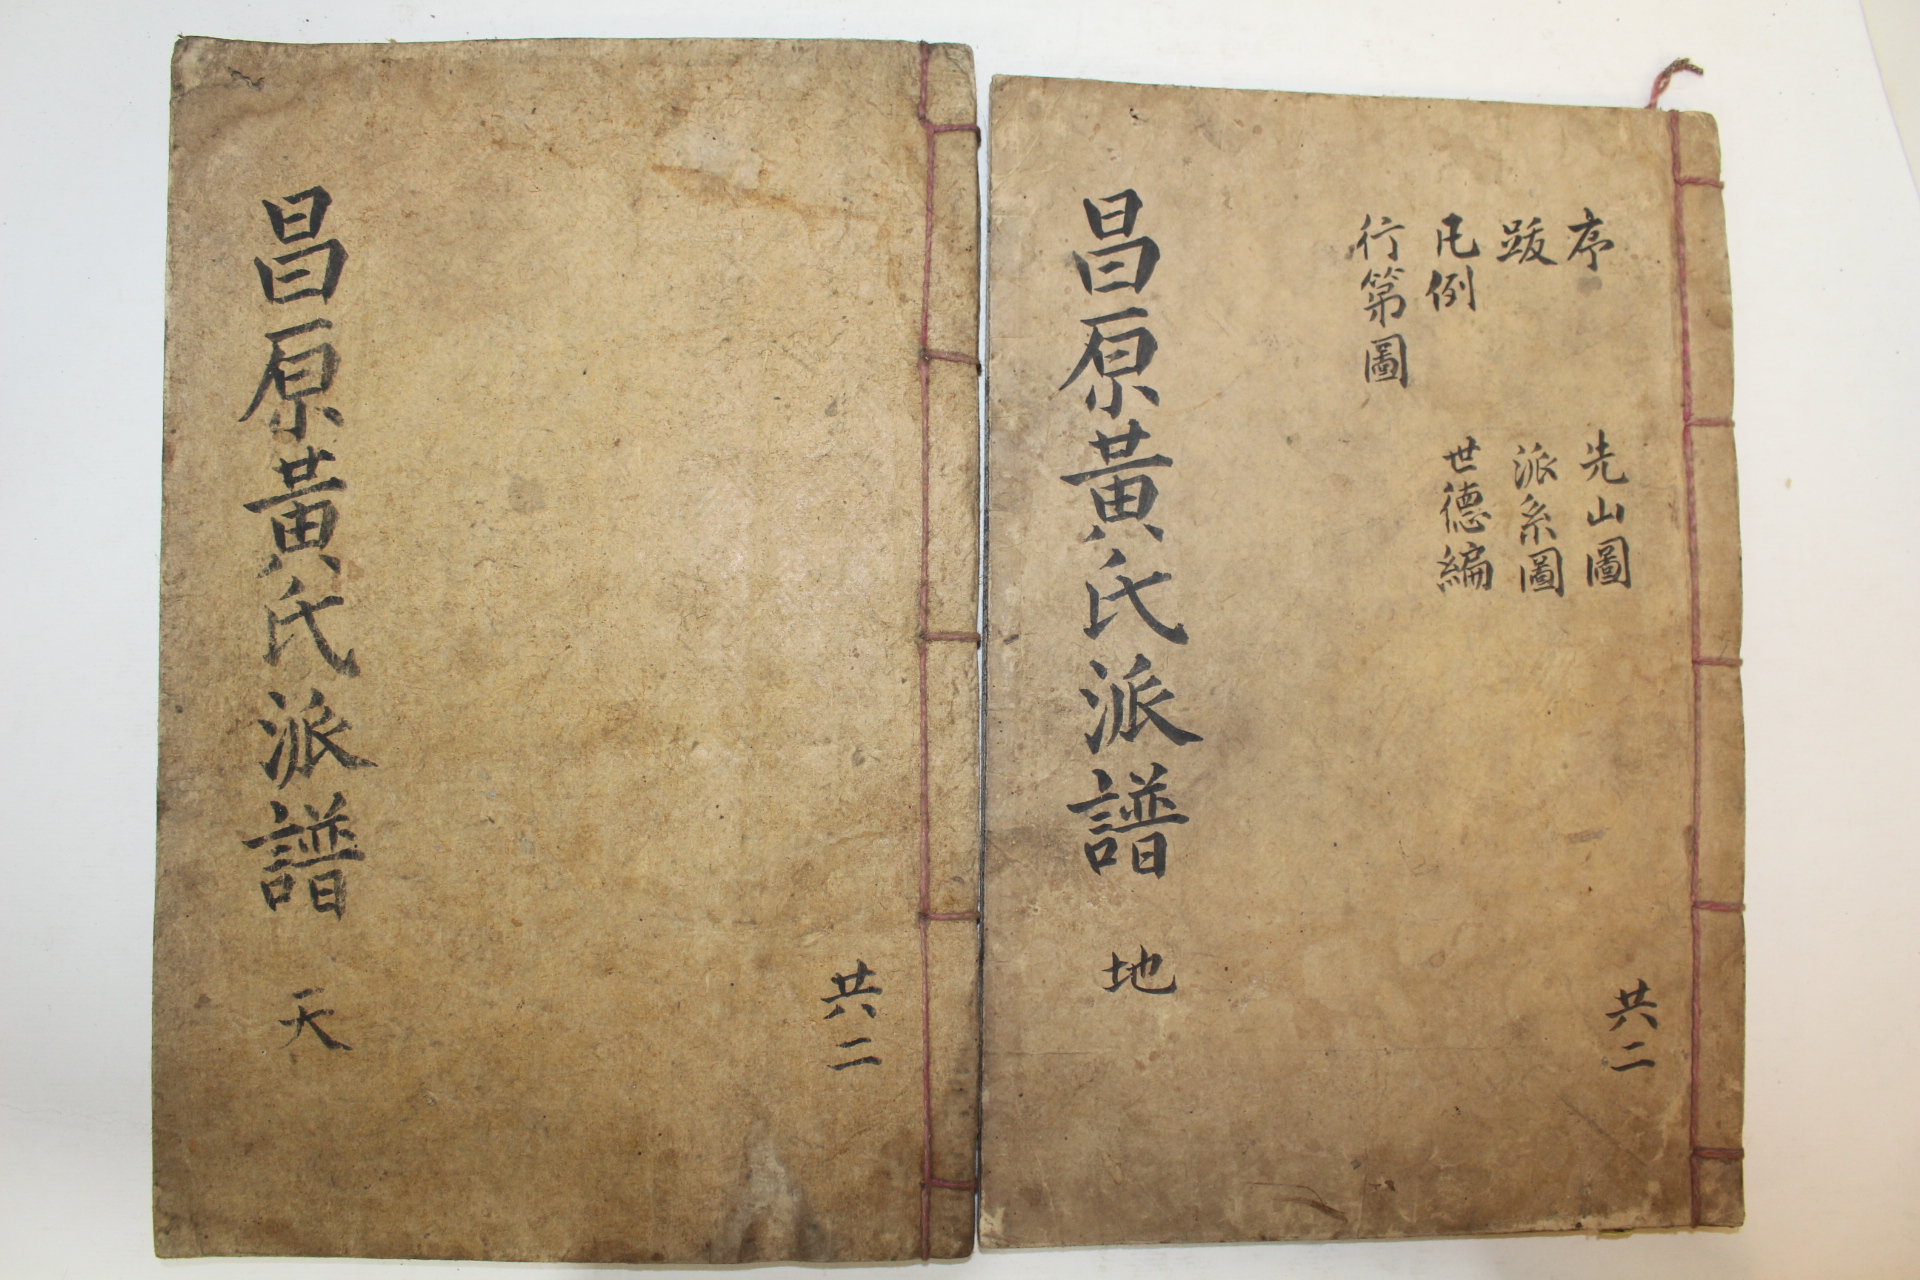 昌原黃氏派譜 天
共二
序
跋
凡例
行第圖
先山圖
派系圖
世德編
昌原黃氏派譜 地
共二